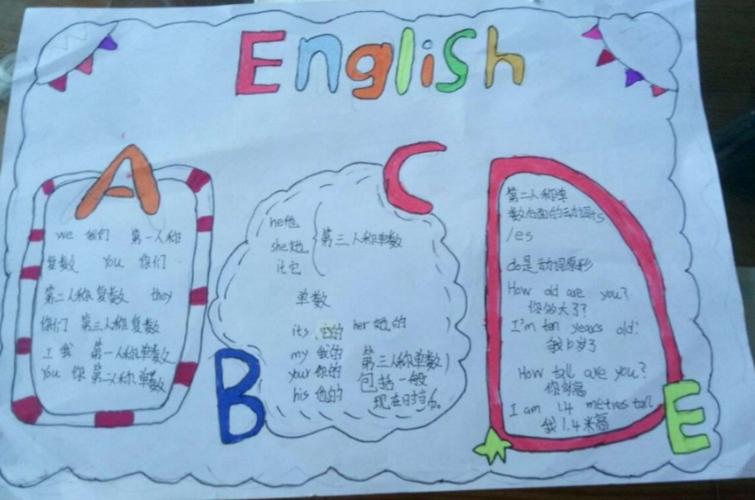 English
A
we 我们 第一人称
复数 you 你们
第二人称复数 they
你们 第三人称复数
I 我 第一人称单数
you 你 第二人称单数
C
he他
she她
it它
第三人称单数
单数
its 它的 her 她的
my 我的 第三人称单数
your你的 包括一般
his 他的 现在时
B
第二人称
数后面的动词s
/es
do是动词原形
How old are you?
你多大了?
I'm ten years old.
我10岁了
How tall are you?
你多高
I am 1.4 metres tall
我1.4米高
E